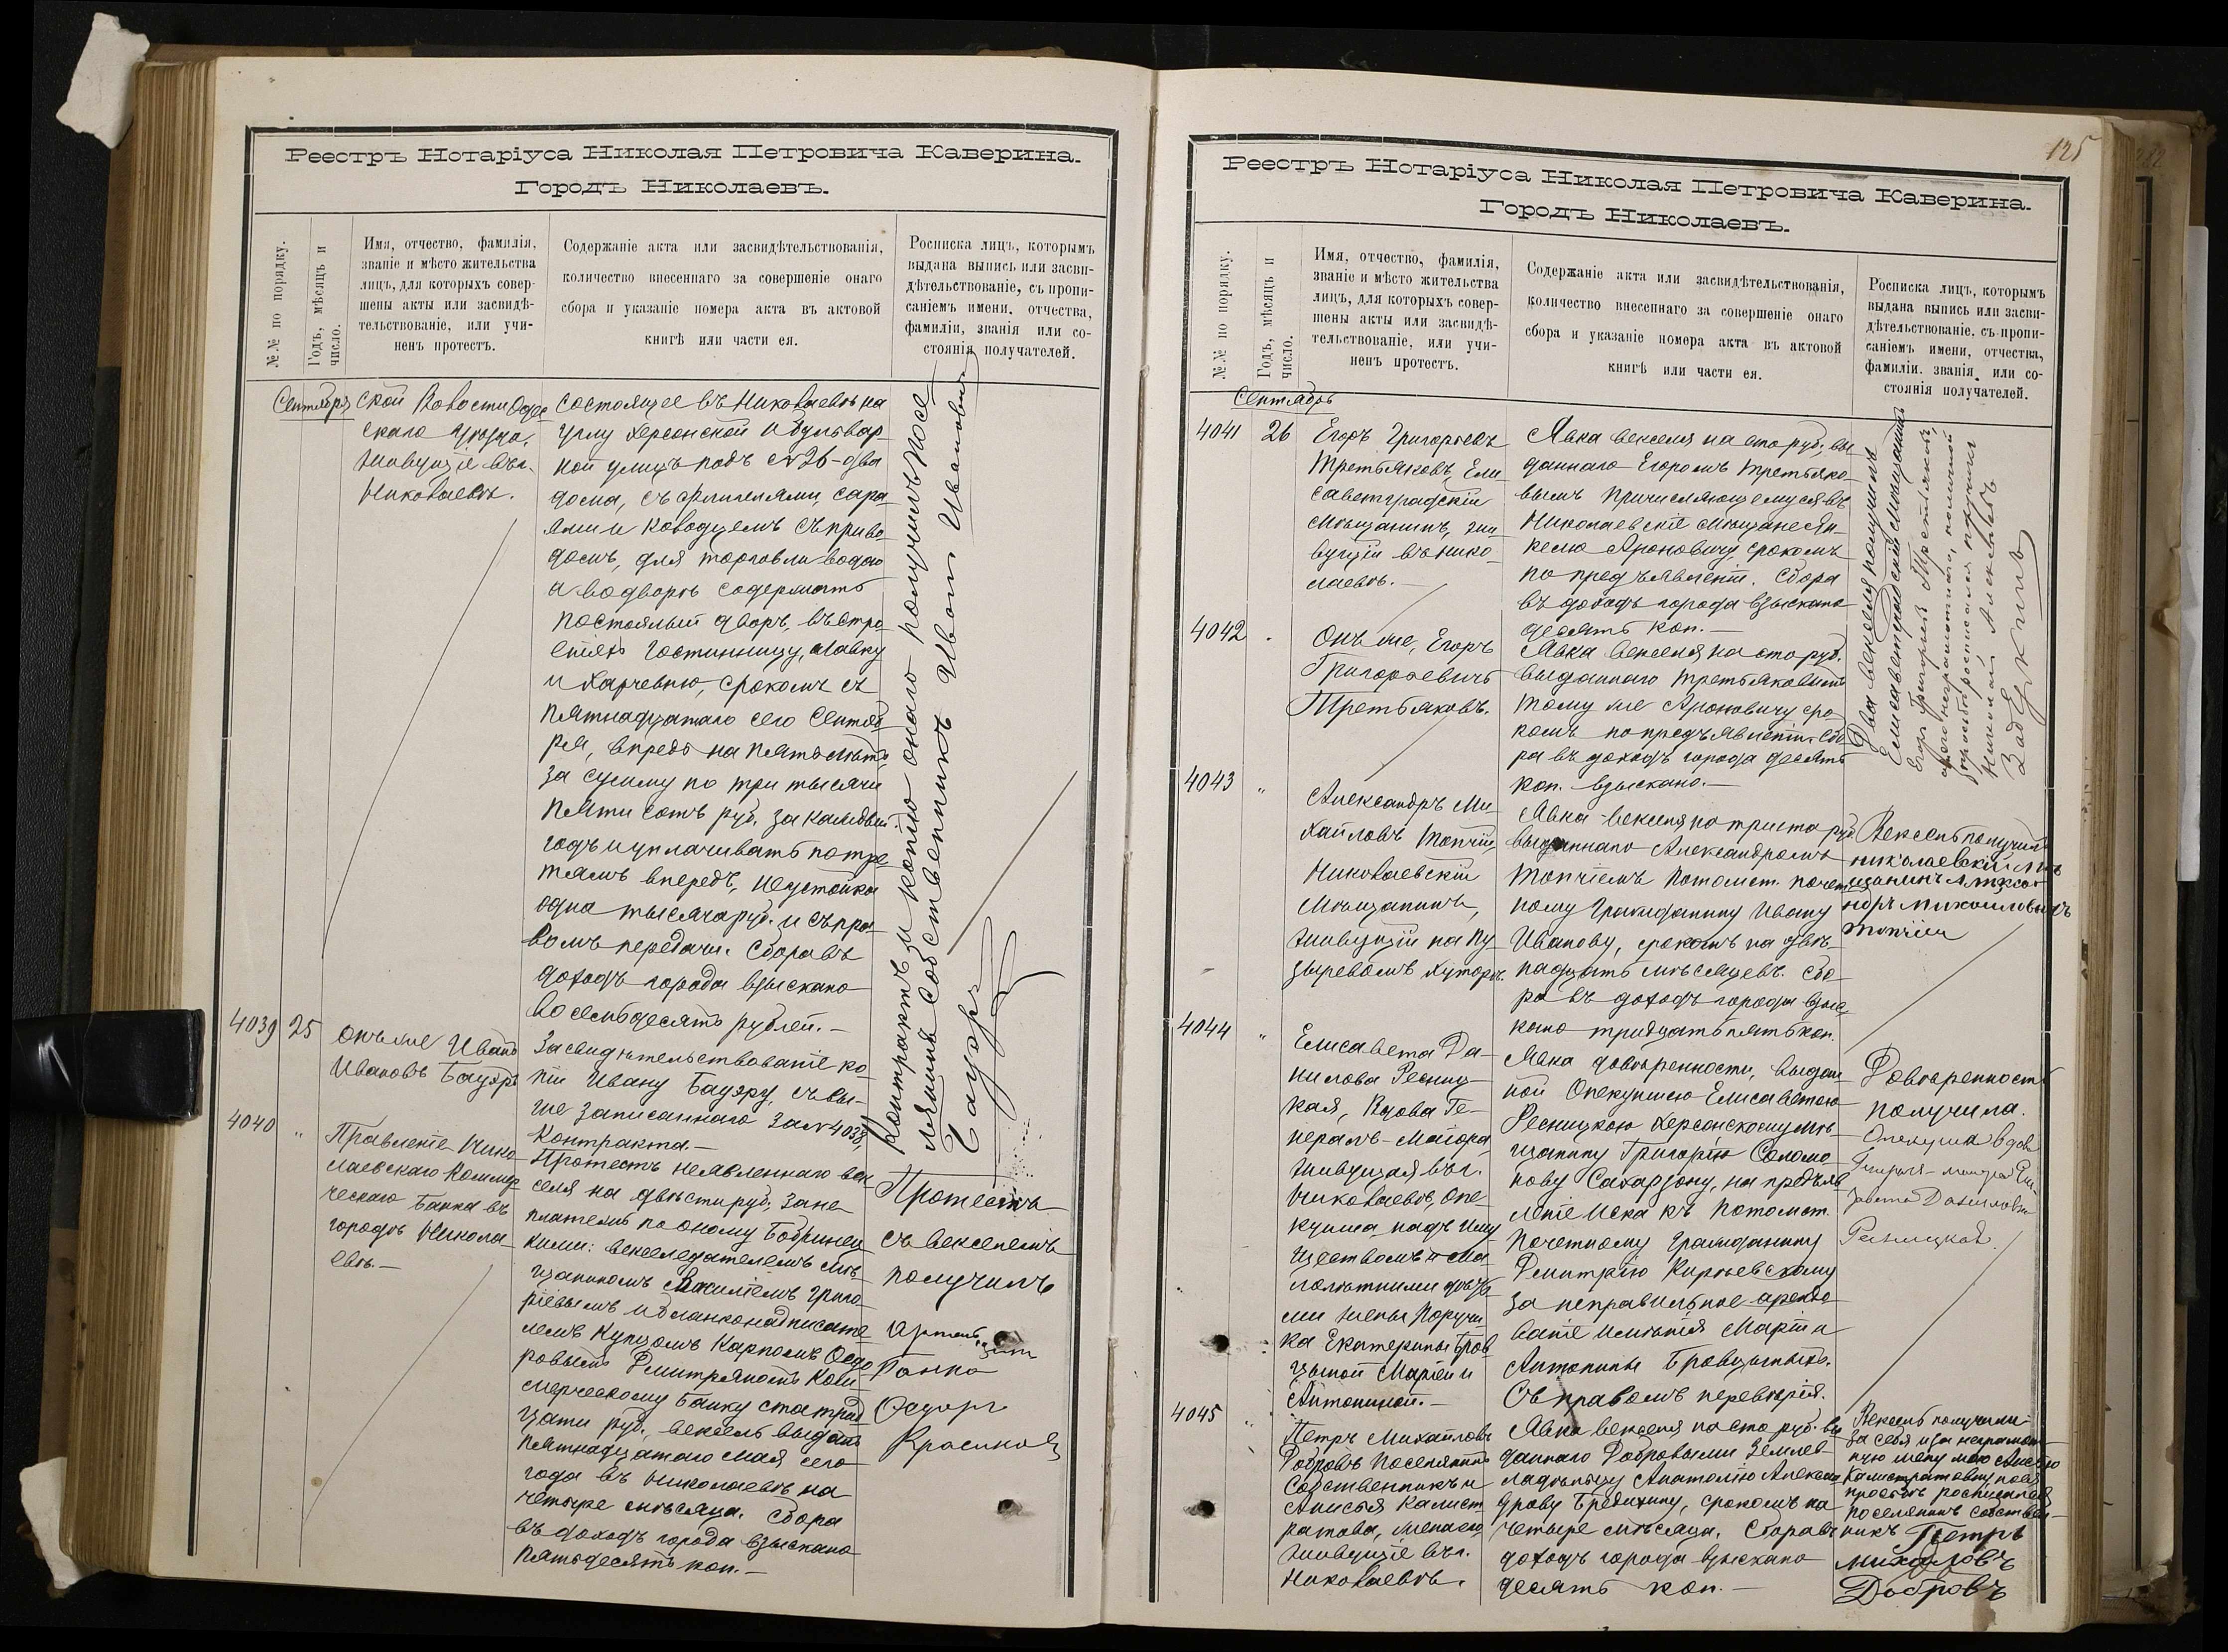 Реестръ Нотаріуса Николая Петровича Каверина.
Городъ Николаевъ.
№№ по порядку.
Годъ, мѣсяцъ и
число.
Имя, отчество, фамилія,
званіе и мѣсто жительства
лицъ, для которыхъ совер-
шены акты или засвидѣ-
тельствованіе, или учи-
ненъ протестъ.
Содержаніе акта или засвидѣтельствованія,
количество внесеннаго за совершеніе онаго
сбора и указаніе номера акта въ актовой
книгѣ или части ея.
Росписка лицъ, которымъ
выдана выпись или засви-
дѣтельствованіе, съ пропи-
саніемъ имени, отчества,
фамиліи, званія или со-
стоянія получателей.
Сентября
ской Волости Одес
скаго уѣзда,
живущіе въ г.
Николаевѣ.
состоящее въ Николаевѣ на
углу Херсонской и Бульвар
ной улицъ подъ №26 - два
дома, съ флигелями, сара
ями и колодцемъ съ приво
домъ, для торговли водою
а во дворѣ содержать
постоялый дворъ, въ стро
еніяхъ гостинницу, лавку
и харчевню, срокомъ съ
пятнадцатаго сего Сентяб
ря, впредь на пять лѣтъ,
за сумму по три тысячи
пяти сотъ руб. за каждый
годъ и уплачивать по тре
тямъ впередъ, неустойка
одна тысяча руб. и съ пра
вомъ передачи. Сбора въ
доходъ города взыскано
восемьдесятъ рублей. -
Контрактъ и копію онаго получилъ посе
лянинъ собственникъ Иванъ Ивановичъ
Бауэръ
4039
25
Онъ же Иванъ
Ивановъ Бауэръ
Засвидѣтельствованіе ко-
піи Ивану Бауэру, съ вы-
ше записаннаго за №4038,
контракта. -
4040
"
Правленіе Нико
лаевскаго Коммер
ческаго Банка въ
городѣ Никола
евѣ. -
Протестъ неявленнаго век
селя на двѣсти руб., за не
платежъ по оному Бобринец
кими: векселедателемъ мѣ
щаниномъ Василіемъ Григо
ріевымъ и бланконадписате
лемъ купцомъ Карпомъ Федо
ровымъ Коммерческому Банку ста трид
цати руб., вексель выданъ
пятнадцатаго мая сего
года въ Николаевѣ на
четыре мѣсяца. Сбора
въ доходъ города взыскано
пятьдесятъ коп. -
Протестъ
съ векселемъ
получилъ
Банка
Федоръ
Красиковъ
125
Реестръ Нотаріуса Николая Петровича Каверина.
Городъ Николаевъ.
№№ по порядку.
Годъ, мѣсяцъ и
число.
Имя, отчество, фамилія,
званіе и мѣсто жительства
лицъ, для которыхъ совер-
шены акты или засвидѣ-
тельствованіе, или учи-
ненъ протестъ.
Содержаніе акта или засвидѣтельствованія,
количество внесеннаго за совершеніе онаго
сбора и указаніе номера акта въ актовой
книгѣ или части ея.
Росписка лицъ, которымъ
выдана выпись или засви-
дѣтельствованіе, съ пропи-
саніемъ имени, отчества,
фамиліи, званія или со-
стоянія получателей.
Сентябрь
4041
26
Егоръ Григорьевъ
Третьяковъ, Ели
саветградскій
мѣщанинъ, жи
вущій въ Нико
лаевѣ. -
Явка векселя на сто руб., вы
даннаго Егоромъ Третьяко-
вымъ причисляющемуся въ
Николаевскіе мѣщане Ян-
келю Ароновичу, срокомъ
по предъявленіи. Сбора
въ доходъ города взыскано
десять коп. -
Два векселя получилъ
Елисаветградскій мѣщанинъ
Егоръ Григорьевъ Третьяковъ,
а за него неграмотнаго, по личной
просьбѣ росписался, получилъ
Николай Алексѣевъ
4042
"
Онъ же, Егоръ
Григорьевичъ
Третьяковъ.
Явка векселя на сто руб.
выданнаго Третьяковымъ
тому же Ароновичу сро
комъ по предъявленіи. Сбо
ра въ доходъ города десять
коп. взыскано. -
4043
"
Александръ Ми
хайловъ Топчій,
Николаевскій
мѣщанинъ,
живущій на Пу
зыревомъ хуторѣ.
Явка векселя на триста руб.
выданнаго Александромъ
Топчіемъ потомст. почет
ному гражданину Ивану
Иванову, срокомъ на двѣ
надцать мѣсяцевъ. Сбо
ра въ доходъ города взыс
кано тридцать пять коп.
Вексель получилъ
николаевскій мѣ
щанинъ Алекса
ндръ Михаиловичъ
Топчій
4044
"
Елисавета Да-
нилова Ресниц-
кая, вдова Ге-
нералъ-Маіора,
живущая въ г.
Николаевѣ, опе
кунша надъ иму
ществомъ и ма
лолѣтними дѣть
ми жены Поручи
ка Екатерины Бров
цыной Маріей и
Антониной. -
Явка довѣренности, выдан
ной Опекуншею Елисаветою
Ресницкою Херсонскому мѣ
щанину Григорію Соломо
нову Сахарзону, на предъяв
леніе иска къ потомст.
почетному гражданину
Дмитрію Кирьевскому
за неправильное арендо
ваніе имѣнія Маріи и
Антонины Бровцыныхъ.
Съ правомъ перевѣрія.
Довѣренность
получила.
Опекунша вдова
Генералъ-маіора Ели-
завета Даниловна
Ресницкая.
4045
"
Петръ Михайловъ
Добровъ поселянинъ
собственникъ и
Анисья Калист
ратова, жена его,
живущіе въ г.
Николаевѣ.
Явка векселя на сто руб. вы
даннаго Добровыми землев
ладѣльцу Анатолію Алексан
дрову Бредихину, срокомъ на
четыре мѣсяца. Сбора въ
доходъ города взыскано
десять коп. -
Вексель получили
за себя и за неграмот
ную жену мою Анисью
Калистратовну по ея
просьбѣ росписался
поселянинъ собствен-
никъ Петръ
Михайловъ
Добровъ